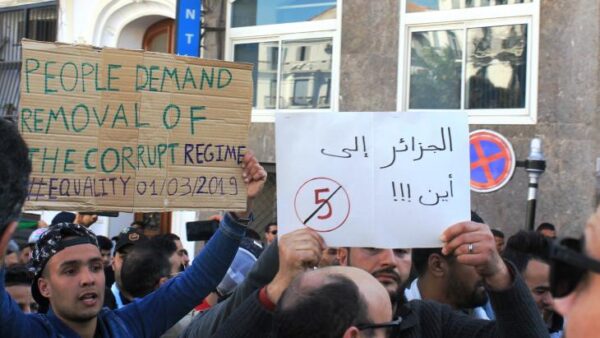 NT
PEOPLE DEMAND
REMOVAL OF
THE CORRUPT REGIME
#EQUALITY 01/03/2019
الجزائر إلى
أين !!!
5